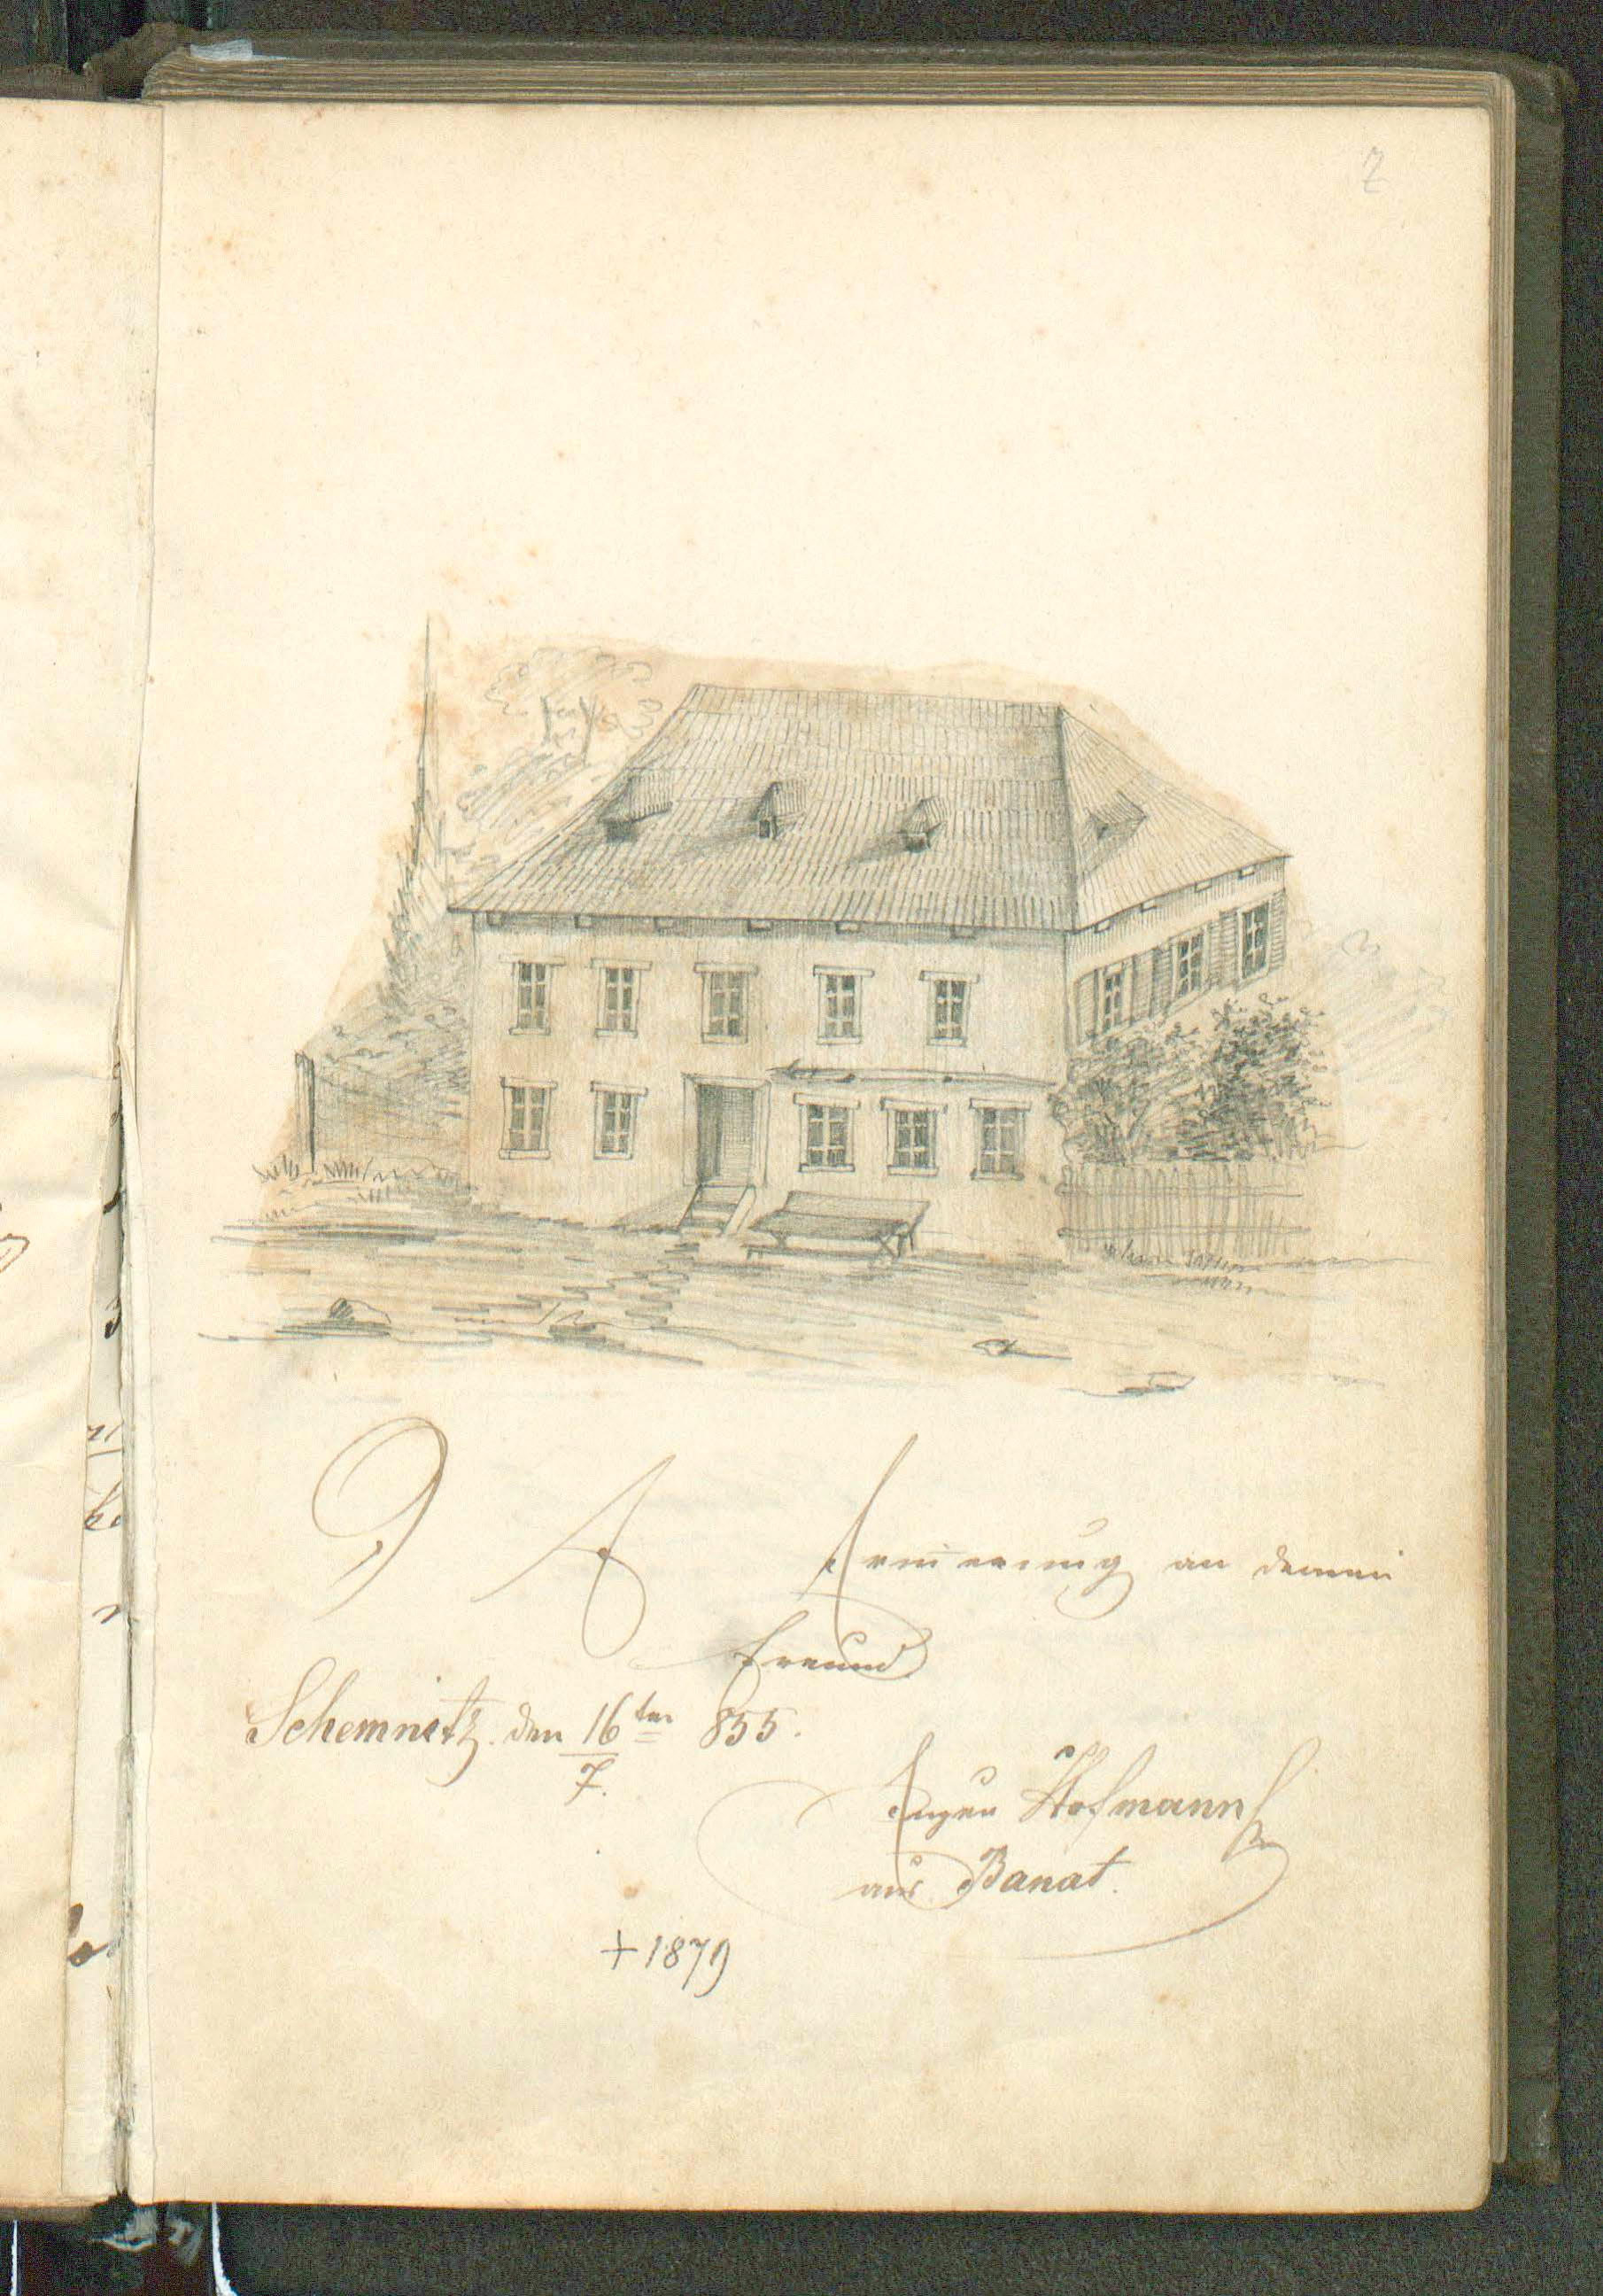 7
Erinnerung an deinen
Freund
Schemnitz. den 16ten 855.
7.
Eugen Hofmann
aus Banat.
+ 1879